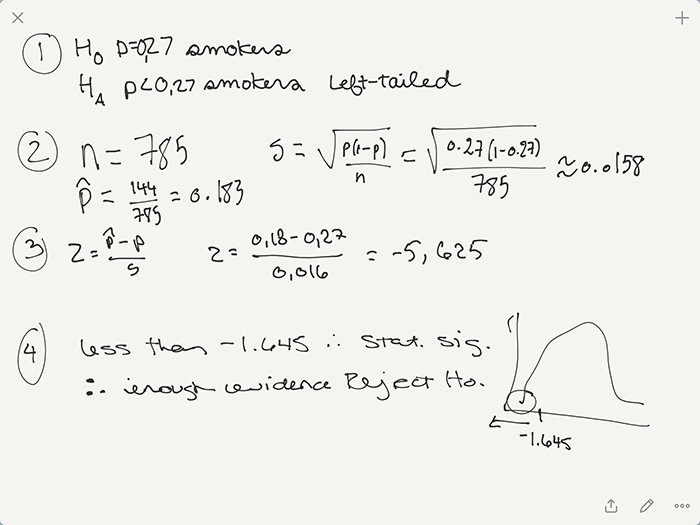 1 H₀ p=0,27 smokers
H_A p<0,27 smokers Left-tailed
2 n = 785 s = √(p(1-p)/n) = √(0.27(1-0.27)/785) ≈ 0.0158
p̂ = 144/785 = 0.183
3 z = (p̂-p)/s z = (0,18-0,27)/0,016 = -5,625
4 less than -1.645 ∴ stat. sig.
∴ enough evidence Reject Ho.
-1.645